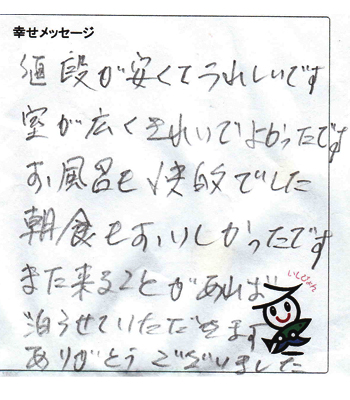 幸せメッセージ
値段が安くてうれしいです
室が広くきれいでよかったです
お風呂も快的でした
朝食もおいしかったです
また来ることがあれば
泊らせていただきます
ありがとうございました
いしぴょん